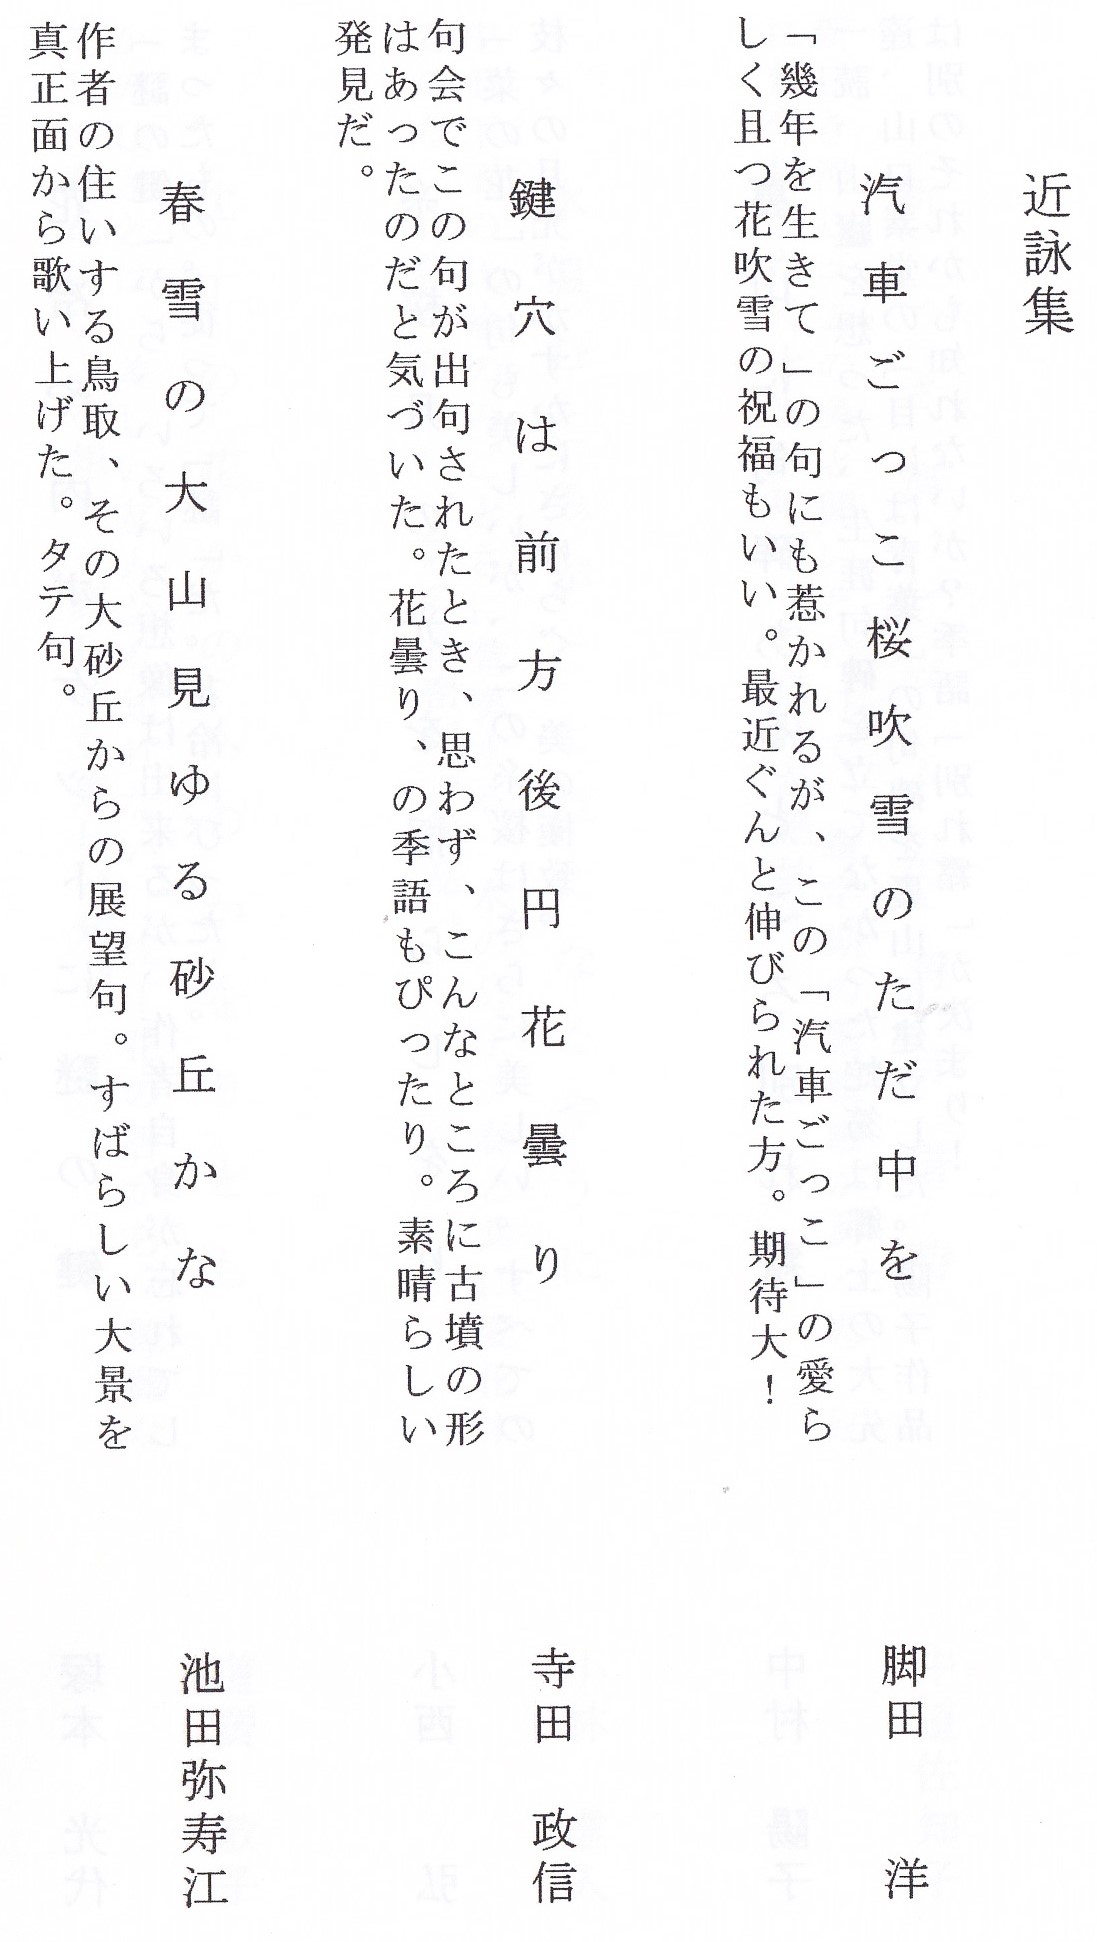 近詠集
汽車ごっこ桜吹雪のただ中を　脚田　洋
「幾年を生きて」の句にも惹かれるが、この「汽車ごっこ」の愛ら
しく且つ花吹雪の祝福もいい。最近ぐんと伸びられた方。期待大！
鍵穴は前方後円花曇り　寺田　政信
句会でこの句が出句されたとき、思わず、こんなところに古墳の形
はあったのだと気づいた。花曇り、の季語もぴったり。素晴らしい
発見だ。
春雪の大山見ゆる砂丘かな　池田弥寿江
作者の住いする鳥取、その大砂丘からの展望句。すばらしい大景を
真正面から歌い上げた。タテ句。